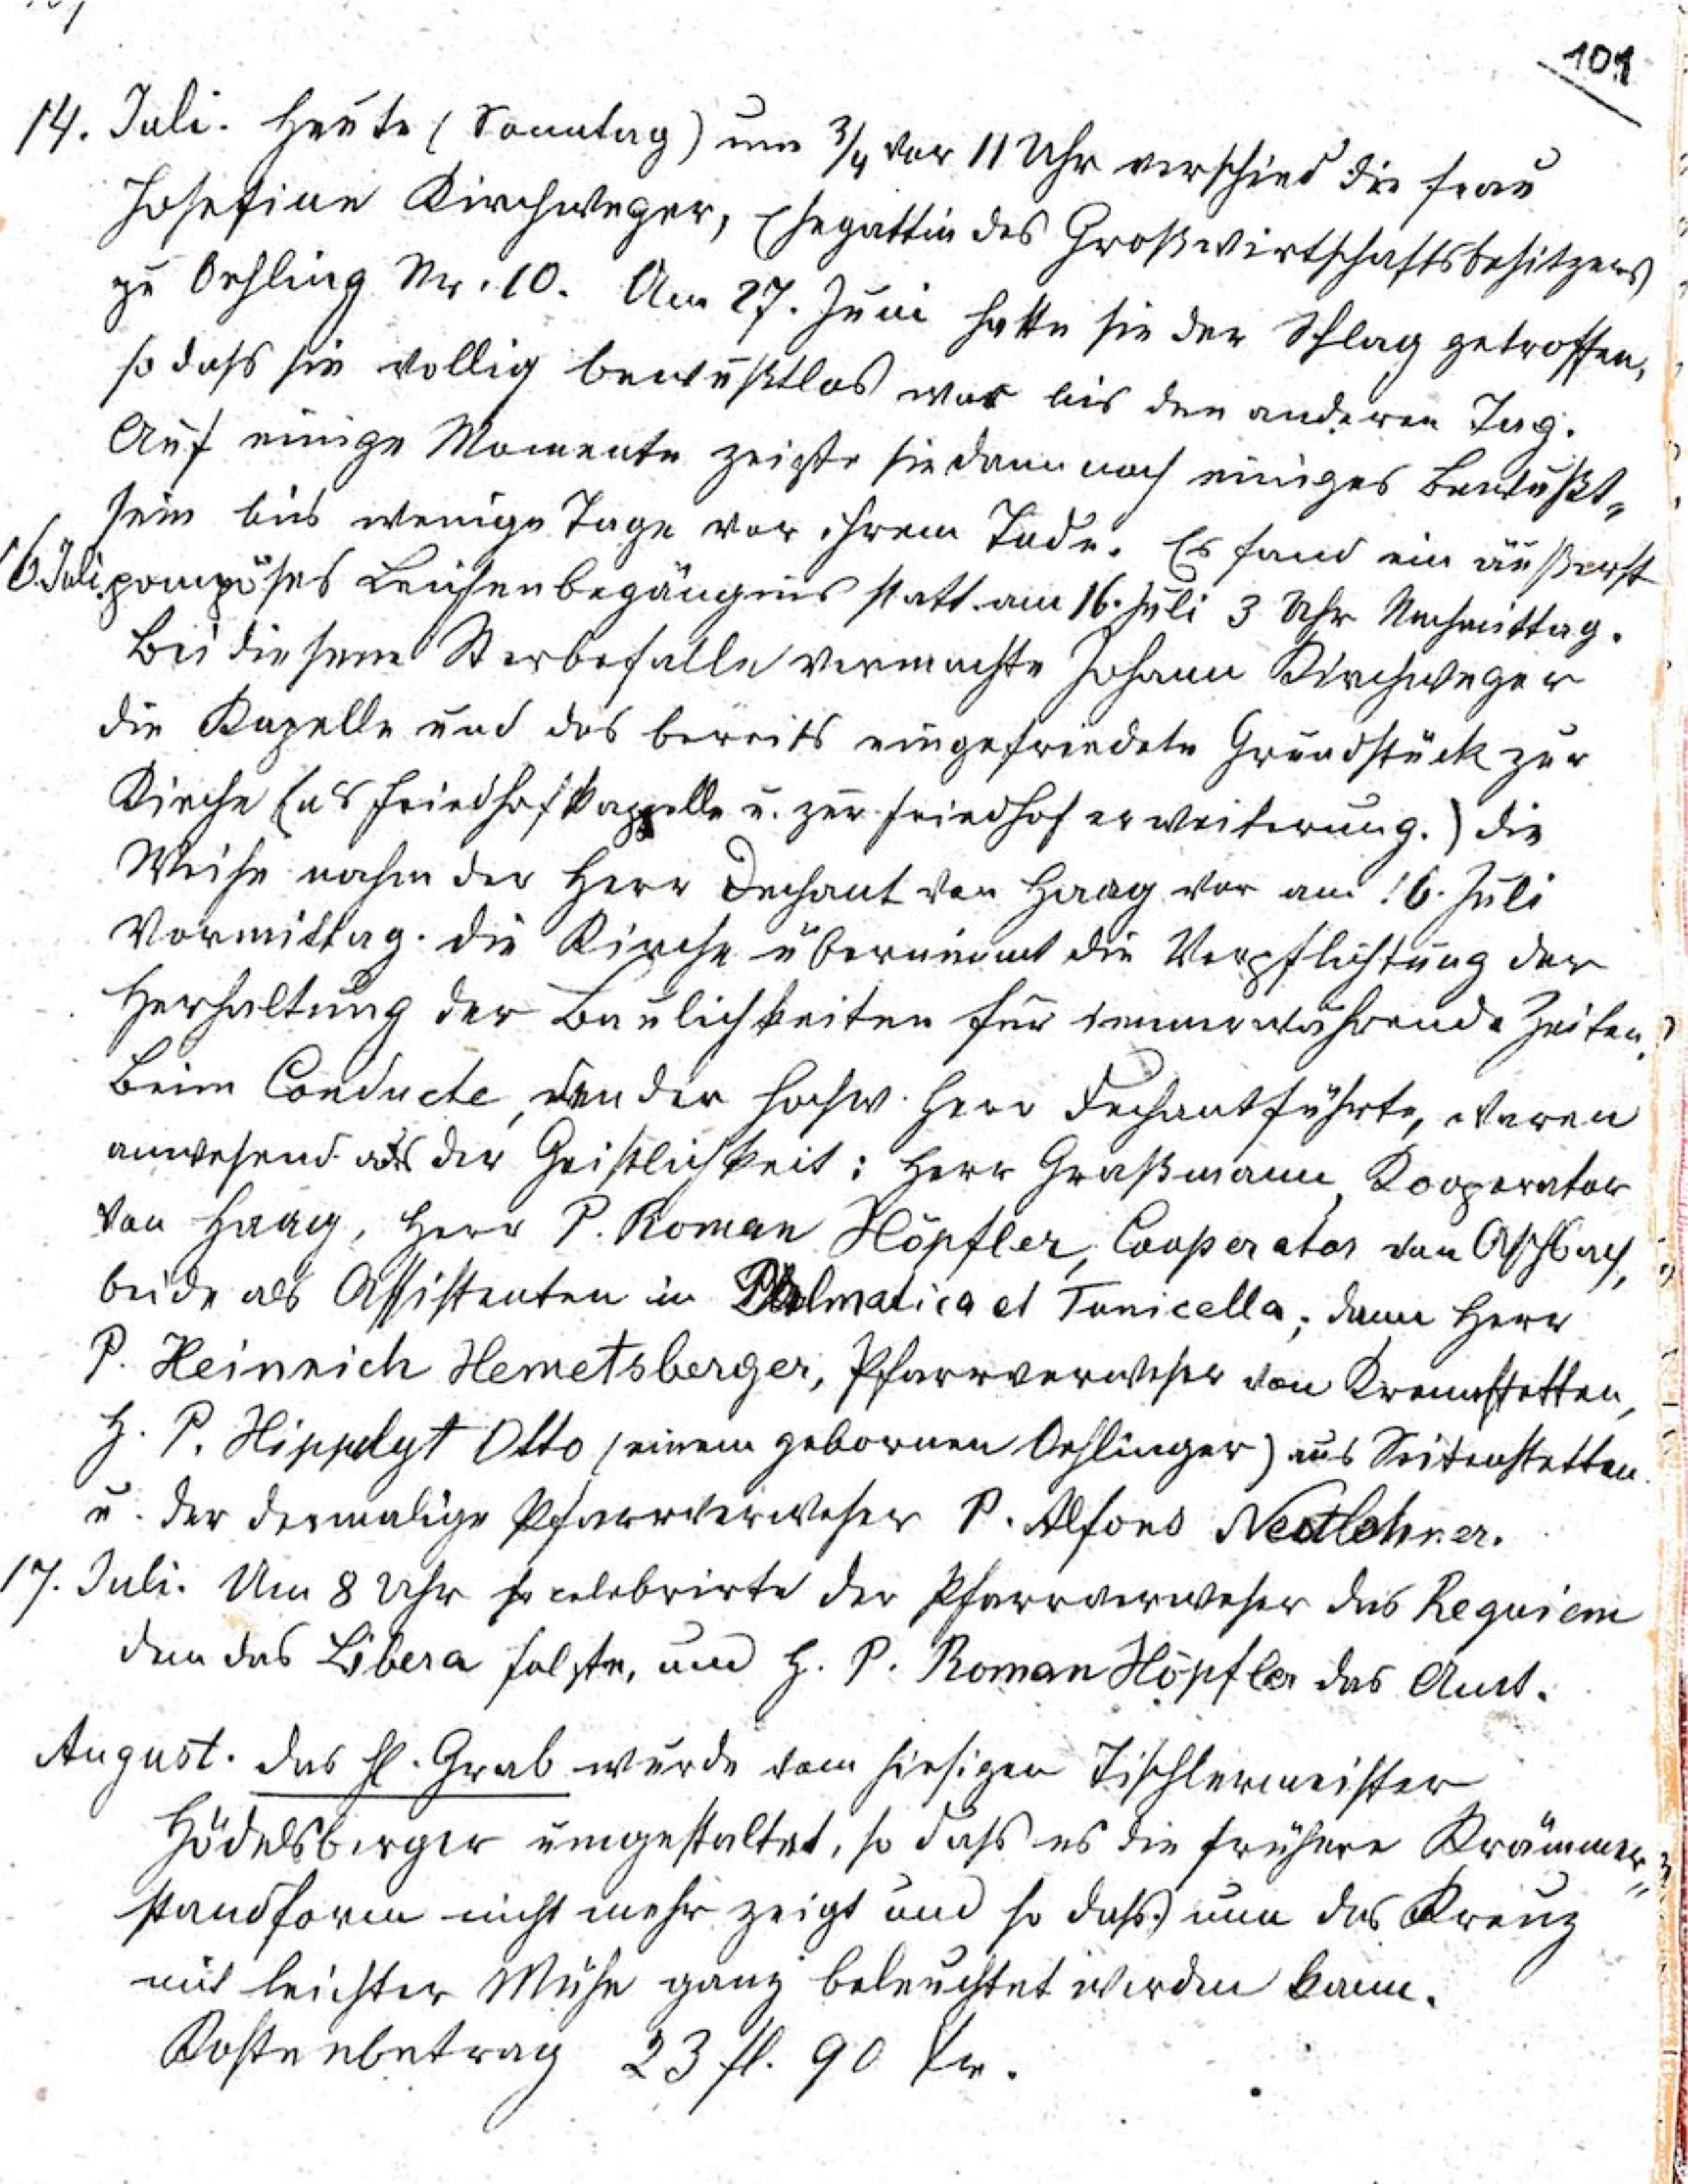 101
14. Juli. Heute (Sonntag) um 3/4 vor 11 Uhr verschied die Frau
Josefine Kirchweger, Ehegattin des Großwirtschaftsbesitzers
zu Oehling Nr. 10. Am 27. Juni hatte sie der Schlag getroffen,
so daß sie vollig bewußtlos war bis den anderen Tag.
Auf einige Momente zeigte sie dann noch einiges Bewußt-
sein bis wenige Tage vor ihrem Tode. Es fand ein äußerst
16. Juli. pompöses Leichenbegängnis statt am 16. Juli 3 Uhr Nachmittag.
Bei diesem Sterbefalle vermachte Johann Kirchweger
die Kapelle und das bereits eingefriedete Grundstück zur
Kirche (als Friedhofkapelle u. zur Friedhoferweiterung.) Die
Weihe nahm der Herr Dechant von Haag vor am 16. Juli
Vormittag. Die Kirche übernimmt die Verpflichtung der
Herhaltung der Baulichkeiten für immerwährende Zeiten.
Beim Conducte, den der hochw. Herr Dechant führte, waren
anwesend aus der Geistlichkeit: Herr Graßmann, Kooperator
von Haag, Herr P. Roman Höpfler, Cooperator von Aschbach,
beide als Assistenten in Dalmatica et Tunicella; dann Herr
P. Heinrich Hemetsberger, Pfarrverweser von Krennstetten,
H. P. Hippolyt Otto (einem gebornen Oehlinger) aus Seitenstetten
u. der dermalige Pfarrverweser P. Alfons Nestlehner.
17. Juli. Um 8 Uhr celebrirte der Pfarrverweser das Requiem
dem das Libera folgte, und H. P. Roman Höpfler das Amt.
August. Das hl. Grab wurde vom hiesigen Tischlermeister
Hödelsberger umgestaltet, so daß es die frühere Krämmer-
standform nicht mehr zeigt und so daß nun das Kreuz
mit leichter Mühe ganz beleuchtet werden kann.
Kostenbetrag 23 fl. 90 kr.